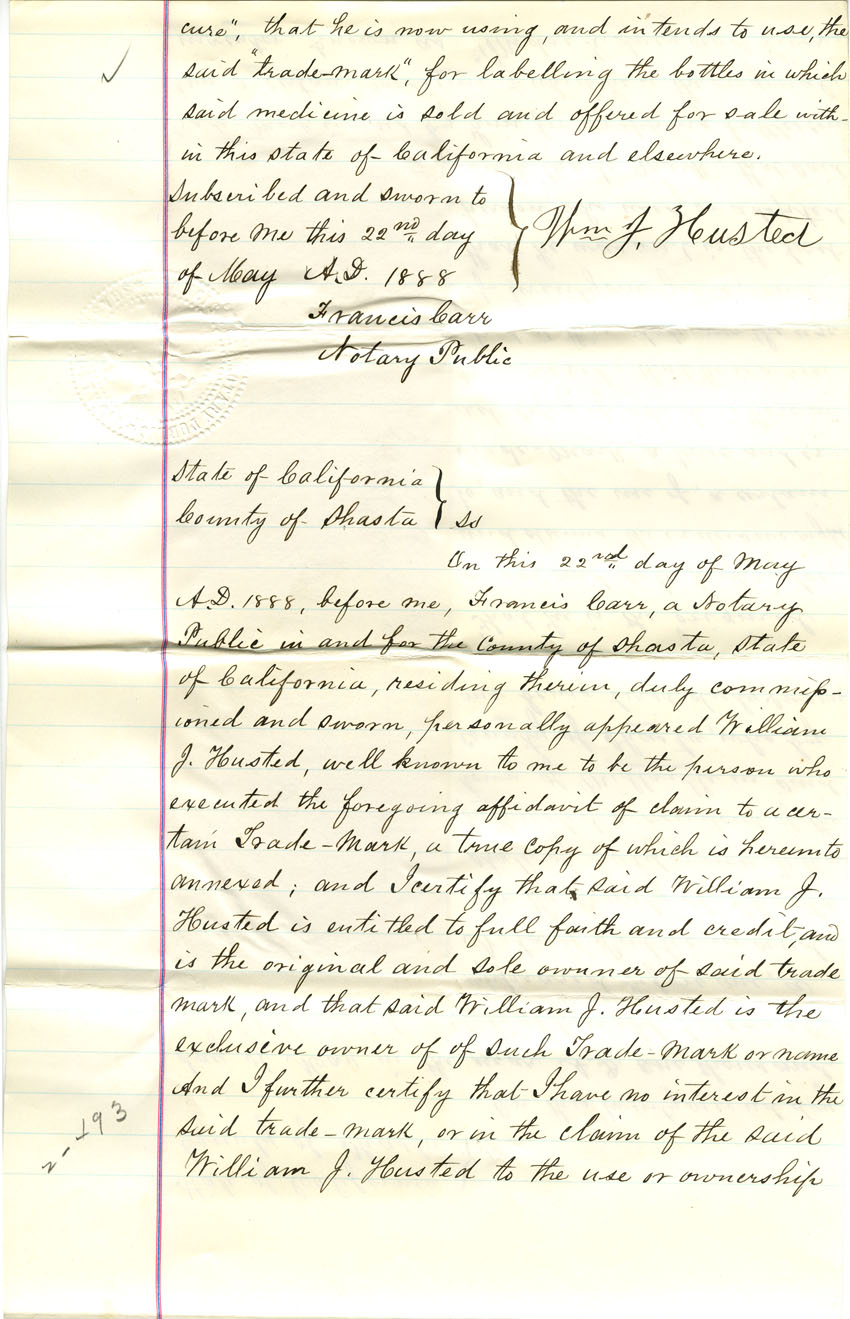 cure", that he is now using, and intends to use, the
said "trade-mark", for labelling the bottles in which
said medicine is sold and offered for sale with-
in this state of California and elsewhere.
Subscribed and sworn to
before me this 22nd day
of May A.D. 1888
Wm J. Husted
Francis Carr
Notary Public
State of California
County of Shasta } ss
On this 22nd day of May
A.D. 1888, before me, Francis Carr, a Notary
Public in and for the County of Shasta, State
of California, residing therein, duly commiss-
ioned and sworn, personally appeared William
J. Husted, well known to me to be the person who
executed the foregoing affidavit of claim to a cer-
tain Trade-Mark, a true copy of which is hereunto
annexed; and I certify that said William J.
Husted is entitled to full faith and credit, and
is the original and sole owner of said trade
mark, and that said William J. Husted is the
exclusive owner of of such Trade-Mark or name
And I further certify that I have no interest in the
said trade-mark, or in the claim of the said
William J. Husted to the use or ownership